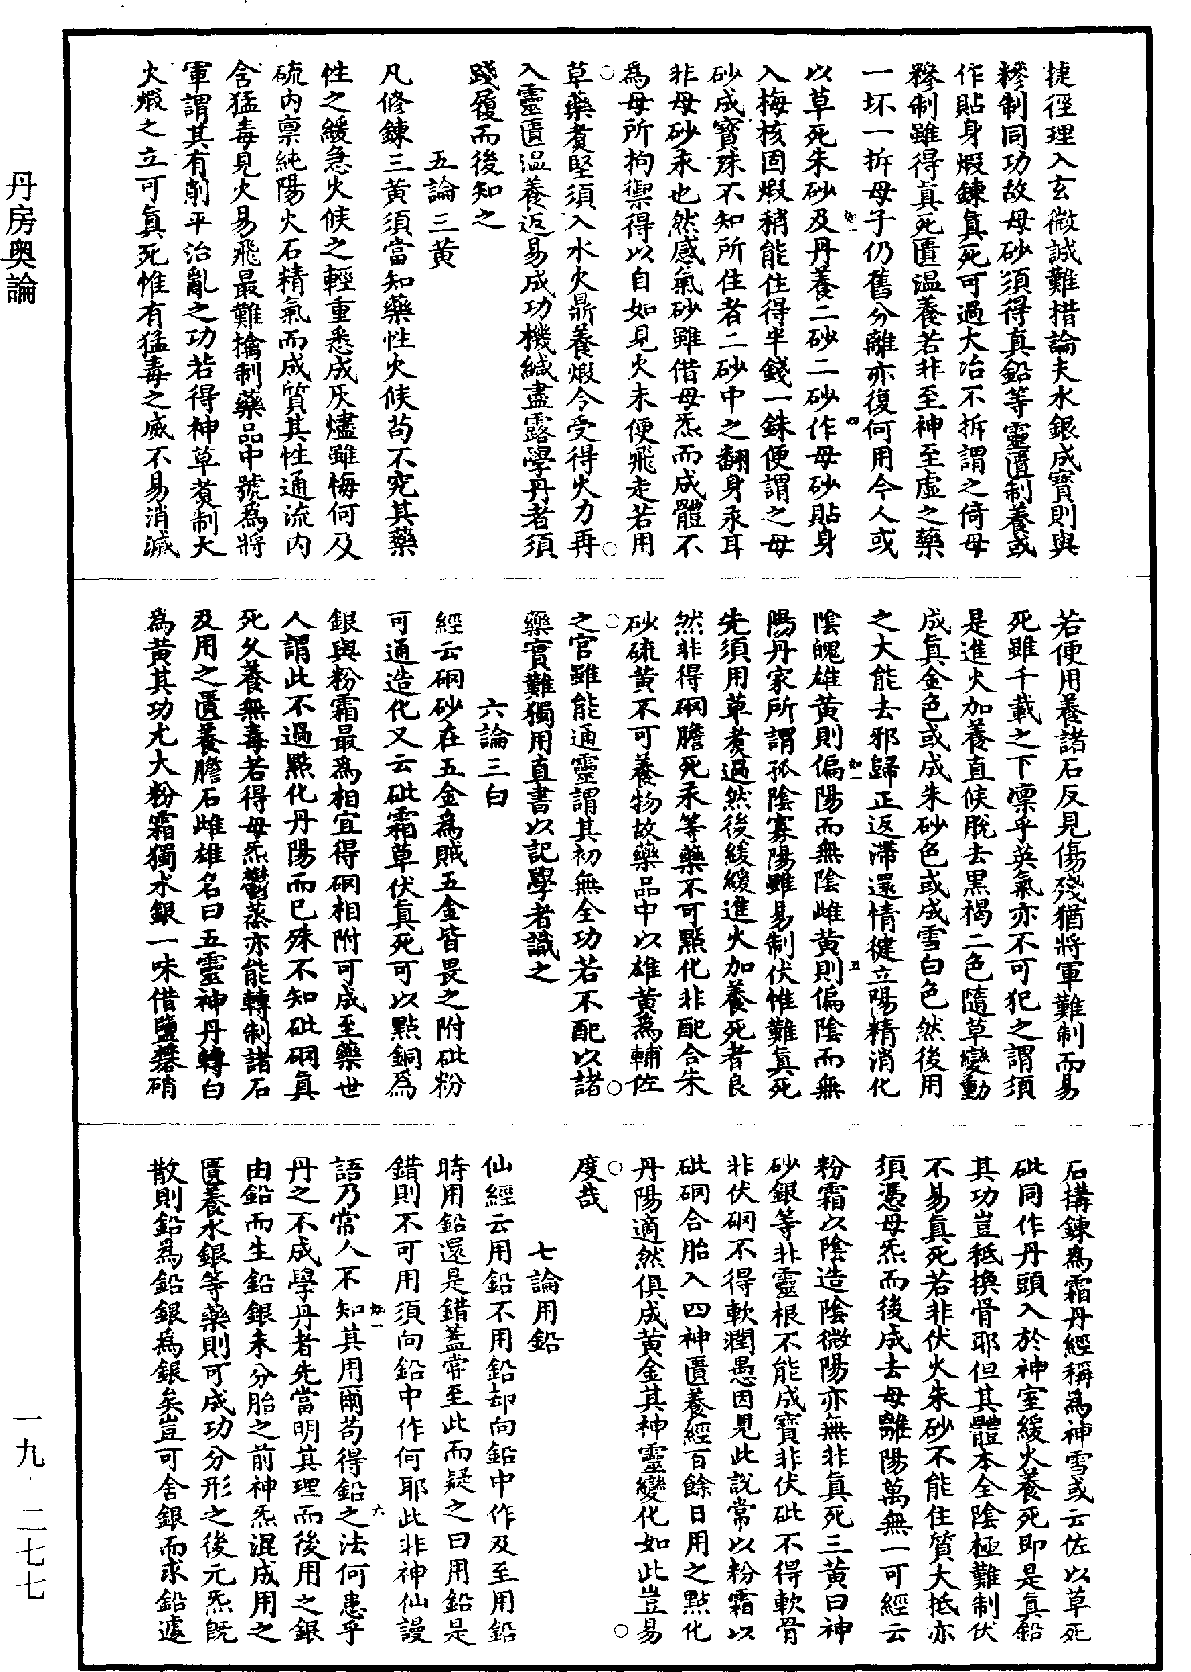 捷徑理入玄微誠難措論夫水銀成寶則與
糝制同功故母砂須得真鉛等靈匱制養或
作貼身煅鍊真死可過大冶不拆謂之倚母
糝制雖得真死匱溫養若非至神至虛之藥
一坏一拆母子仍舊分離亦復何用今人或
以草死朱砂及丹養二砂二砂作母砂貼身
入梅核固煅稍能住得半錢一銖便謂之母
砂成寶殊不知所住者二砂中之翻身汞耳
非母砂汞也然感氣砂雖借母炁而成體不
為母所拘禦得以自如見火未便飛走若用
草藥煮堅須入水火鼎養煅令受得火力再
入靈匱溫養返易成功機緘盡露學丹者須
踐履而後知之
五論三黃
凡修鍊三黃須當知藥性火候苟不究其藥
性之緩急火候之輕重悉成灰燼雖悔何及
硫內禀純陽火石精氣而成質其性通流內
含猛毒見火易飛最難擒制藥品中號為將
軍謂其有削平治亂之功若得神草煮制大
火煅之立可真死惟有猛毒之威不易消滅
若便用養諸石反見傷殘猶將軍難制而易
死雖千載之下凜乎英氣亦不可犯之謂須
是進火加養直候脫去黑褐二色隨草變動
成真金色或成朱砂色或成雪白色然後用
之大能去邪歸正返滯還情徤立陽精消化
陰魄雄黃則偏陽而無陰雌黃則偏陰而無
陽丹家所謂孤陰寡陽雖易制伏惟難真死
先須用草煮過然後緩緩進火加養死者良
然非得硇膽死汞等藥不可點化非配合朱
砂硫黃不可養物故藥品中以雄黃為輔佐
之官雖能通靈謂其初無全功若不配以諸
藥實難獨用直書以記學者識之
六論三白
經云硇砂在五金為賊五金皆畏之附砒粉
可通造化又云砒霜草伏真死可以點銅為
銀與粉霜最為相宜得硇相附可成至藥世
人謂此不過點化丹陽而已殊不知砒硇真
死久養無毒若得母炁鬱蒸亦能轉制諸石
及用之匱養膽石雌雄名曰五靈神丹轉白
為黃其功尤大粉霜獨水銀一味借鹽礬硝
石搆鍊為霜丹經稱為神雪或云佐以草死
砒同作丹頭入於神室緩火養死即是真鉛
其功豈秪換骨耶但其體本全陰極難制伏
不易真死若非伏火朱砂不能住質大抵亦
須憑母炁而後成去母離陽萬無一可經云
粉霜以陰造陰微陽亦無非真死三黃曰神
砂銀等非靈根不能成寶非伏砒不得軟骨
非伏硇不得軟潤愚因見此說常以粉霜以
砒硇合胎入四神匱養經百餘日用之點化
丹陽適然俱成黃金其神靈變化如此豈易
度哉
七論用鉛
仙經云用鉛不用鉛却向鉛中作及至用鉛
時用鉛還是錯蓋常至此而疑之曰用鉛是
錯則不可用須向鉛中作何耶此非神仙謾
語乃常人不知其用爾苟得鉛之法何患乎
丹之不成學丹者先當明其理而後用之銀
由鉛而生鉛銀未分胎之前神炁混成用之
匱養水銀等藥則可成功分形之後元炁既
散則鉛為鉛銀為銀矣豈可舍銀而求鉛遽
丹房奧論
一九·二七七